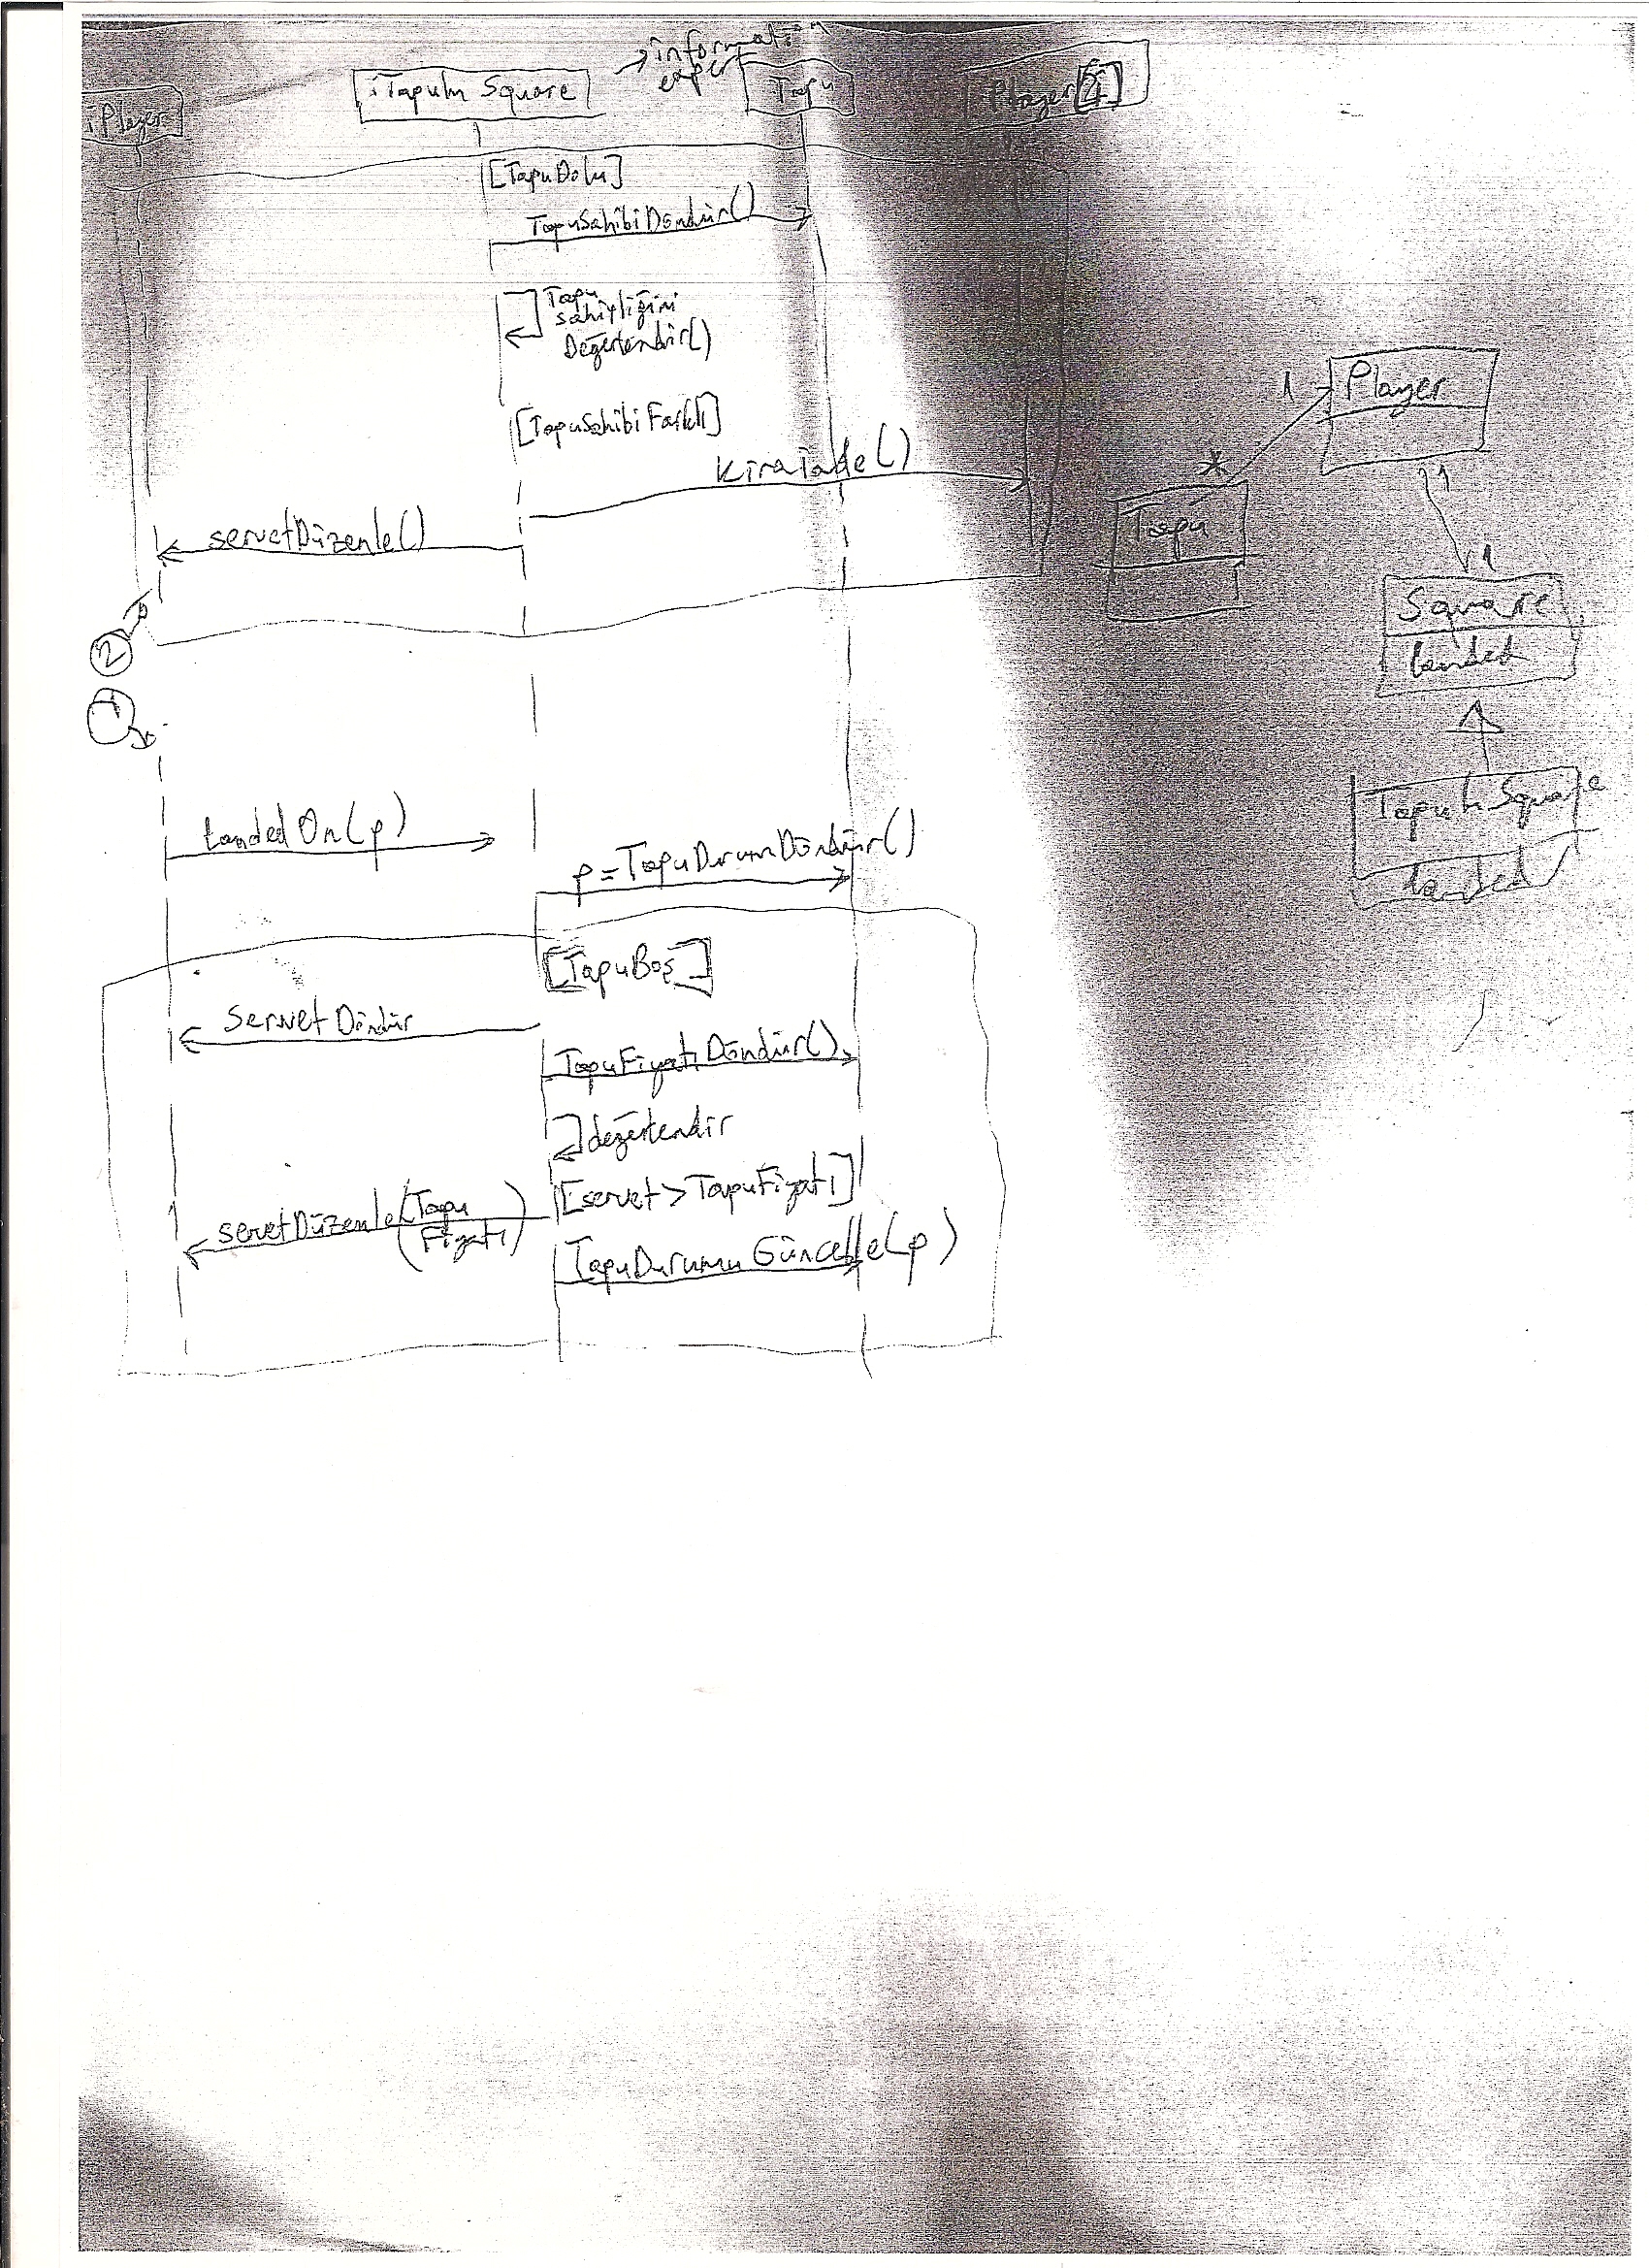 → information
expert
:Player
:Tapulu Square
Tapu
Player[i]
[TapuDolu]
TapuSahibiDöndür()
Tapu
sahipliğini
Değerlendir()
[TapuSahibiFarklı]
Kiraİade()
servetDüzenle()
2
1
LandedOn(p)
p=TapuDurumDöndür()
[TapuBoş]
Servet Döndür
TapuFiyatıDöndür()
değerlendir
[servet>TapuFiyatı]
servetDüzenle(Tapu
Fiyatı)
TapuDurumuGüncelle(p)
1
Player
*
Tapu
1
1
Square
landed
Tapulu Square
landed